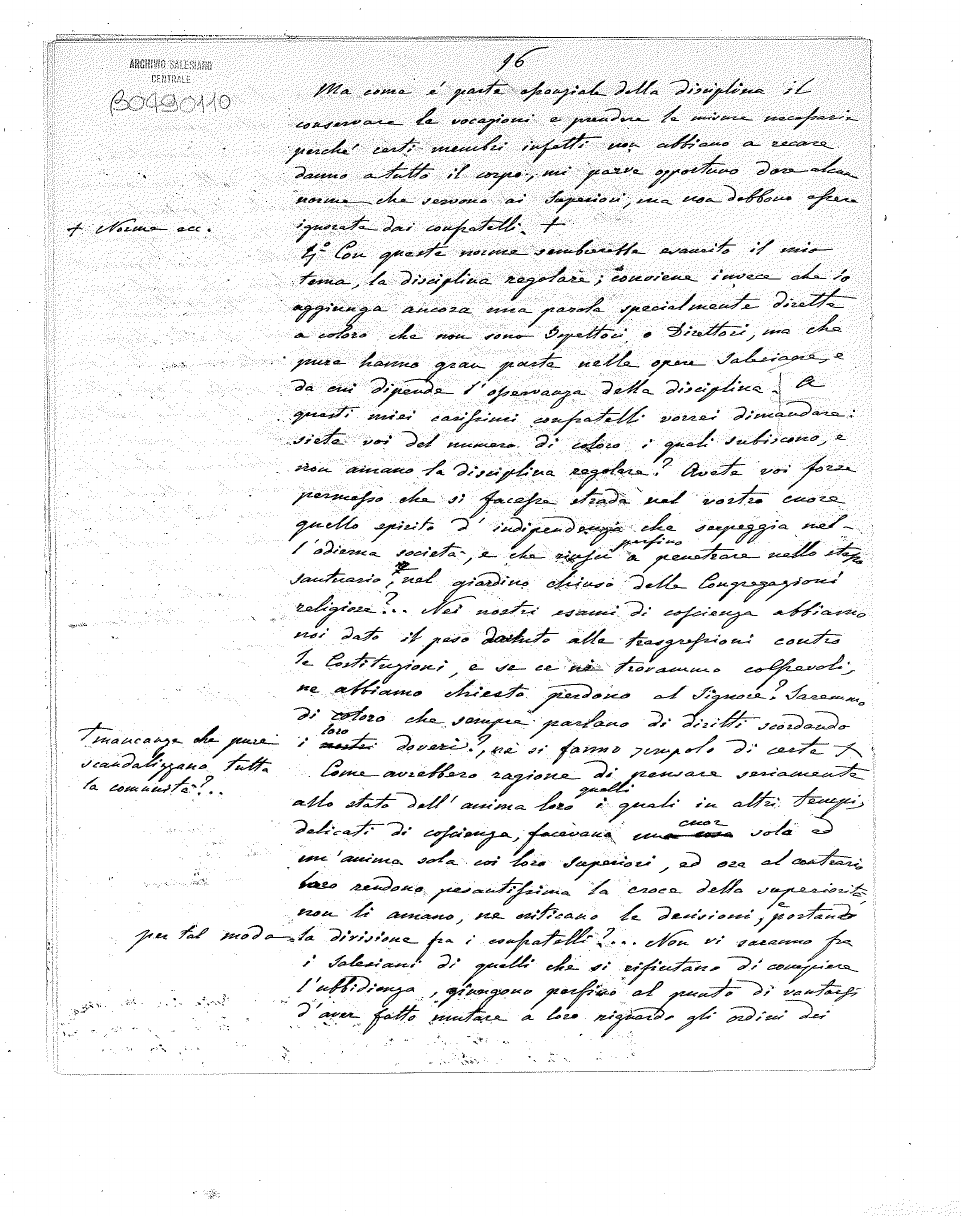 ARCHIVIO SALESIANO
CENTRALE
B0490110
16
Ma come é parte essenziale della disciplina il
conservare le vocazioni e prendere le misure necessarie
perché certi membri infetti non abbiano a recare
danno a tutto il corpo, mi parve opportuno dare alcune
norme che servono ai Superiori, ma non debbono essere
ignorate dai confratelli. +
+ Norme ecc.
4° Con queste norme sembrerebbe esaurito il mio
tema, la disciplina regolare; conviene invece che io
aggiunga ancora una parola specialmente diretta
a coloro che non sono Ispettori o Direttori, ma che
pure hanno gran parte nelle opere Salesiane, e
da cui dipende l'osservanza della disciplina. A
questi miei carissimi confratelli vorrei dimandare:
siete voi del numero di coloro i quali subiscono, e
non amano la disciplina regolare? Avete voi forse
permesso che si facesse strada nel vostro cuore
quello spirito d'indipendenza che serpeggia nel-
l'odierna società, e che riuscì perfino a penetrare nello stesso
santuario, nel giardino chiuso delle Congregazioni
religiose?.. Nei nostri esami di coscienza abbiamo
noi dato il peso dovuto alle trasgressioni contro
le Costituzioni, e se ce ne trovammo colpevoli,
ne abbiamo chiesto perdono al Signore? Saremmo
di coloro che sempre parlano di diritti scordando
i nostri loro doveri?, ne si fanno scrupolo di certe +
+ mancanze che pure
scandalizzano tutta
la comunità?..
Come avrebbero ragione di pensare seriamente
allo stato dell'anima loro quelli i quali in altri tempi,
delicati di coscienza, facevano un cuor solo ed
un'anima sola coi loro Superiori, ed ora al contrario
loro rendono pesantissima la croce della superiorità,
non li amano, ne criticano le decisioni, e portando
per tal modo la divisione fra i confratelli?... Non vi saranno fra
i Salesiani di quelli che si rifiutano di compiere
l'ubbidienza, giungono perfino al punto di vantarsi
d'aver fatto mutare a loro riguardo gli ordini dei